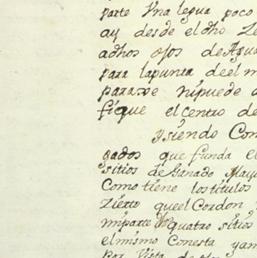 parte Vna legua poco
ay desde el dho Ze
adhos ojos de Agua
para lapunta de el m
parase nipuede
fique el centro de
Ysiendo Con
gados que funda el
sitios de Ganado Mayo
Como tiene los titulos
Zierto queel Cordon
miparte quatro sitios
el mismo Conesta yam
Por Vista de